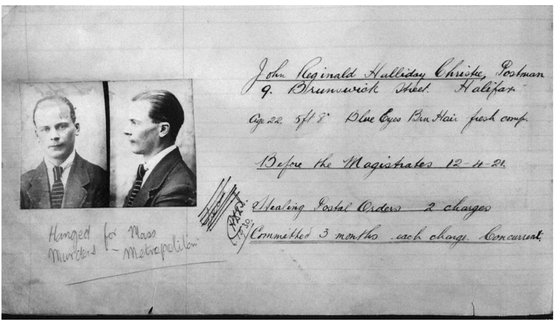 John Reginald Halliday Christie, Postman
9. Brunswick Street. Halifax
Age 22 5ft 8" Blue Eyes Bm Hair fresh comp.
Before the Magistrates 12-4-21.
Stealing Postal Orders 2 charges
Committed 3 months each charge. Concurrent.
Hanged for Mass
Murders - Metropolitan